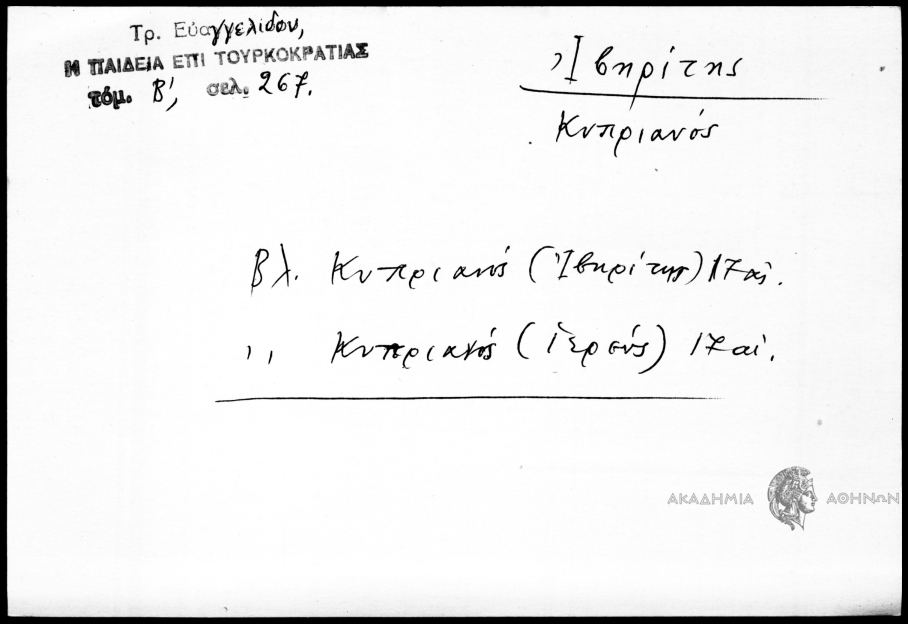 Τρ. Εὐαγγελίδου,
Η ΠΑΙΔΕΙΑ ΕΠΙ ΤΟΥΡΚΟΚΡΑΤΙΑΣ
τόμ. Β', σελ. 267.
Ἰβηρίτης
Κυπριανός
Βλ. Κυπριανός (Ἰβηρίτης) 17 αἰ.
,, Κυπριανός (ἱερεύς) 17 αἰ.
ΑΚΑΔΗΜΙΑ ΑΘΗΝΩΝ